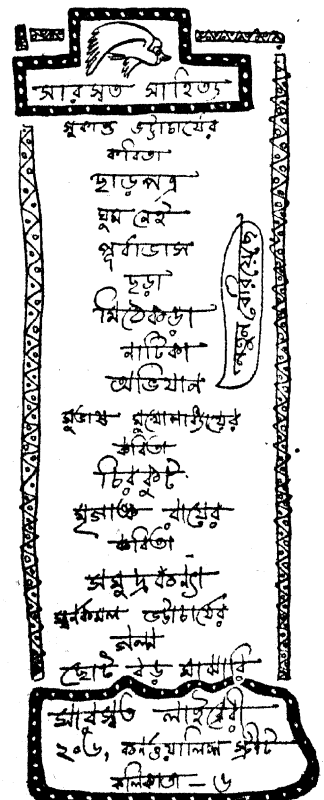 সারস্বত সাহিত্য
সুকান্ত ভট্টাচার্যের
কবিতা
ছাড়পত্র
ঘুম নেই
পূর্বাভাস
ছড়া
মিঠেকড়া
নাটিকা
অভিযান
নতুন বেরিয়েছে
সুভাষ মুখোপাধ্যায়ের
কবিতা
চিরকুট
মৃগাঙ্ক রায়ের
কবিতা
সমুদ্রকন্যা
স্বর্ণকমল ভট্টাচার্যের
গল্প
ছোট বড় মাঝারি
সারস্বত লাইব্রেরী
২০৬, কর্নওয়ালিস স্ট্রীট
কলিকাতা - ৬